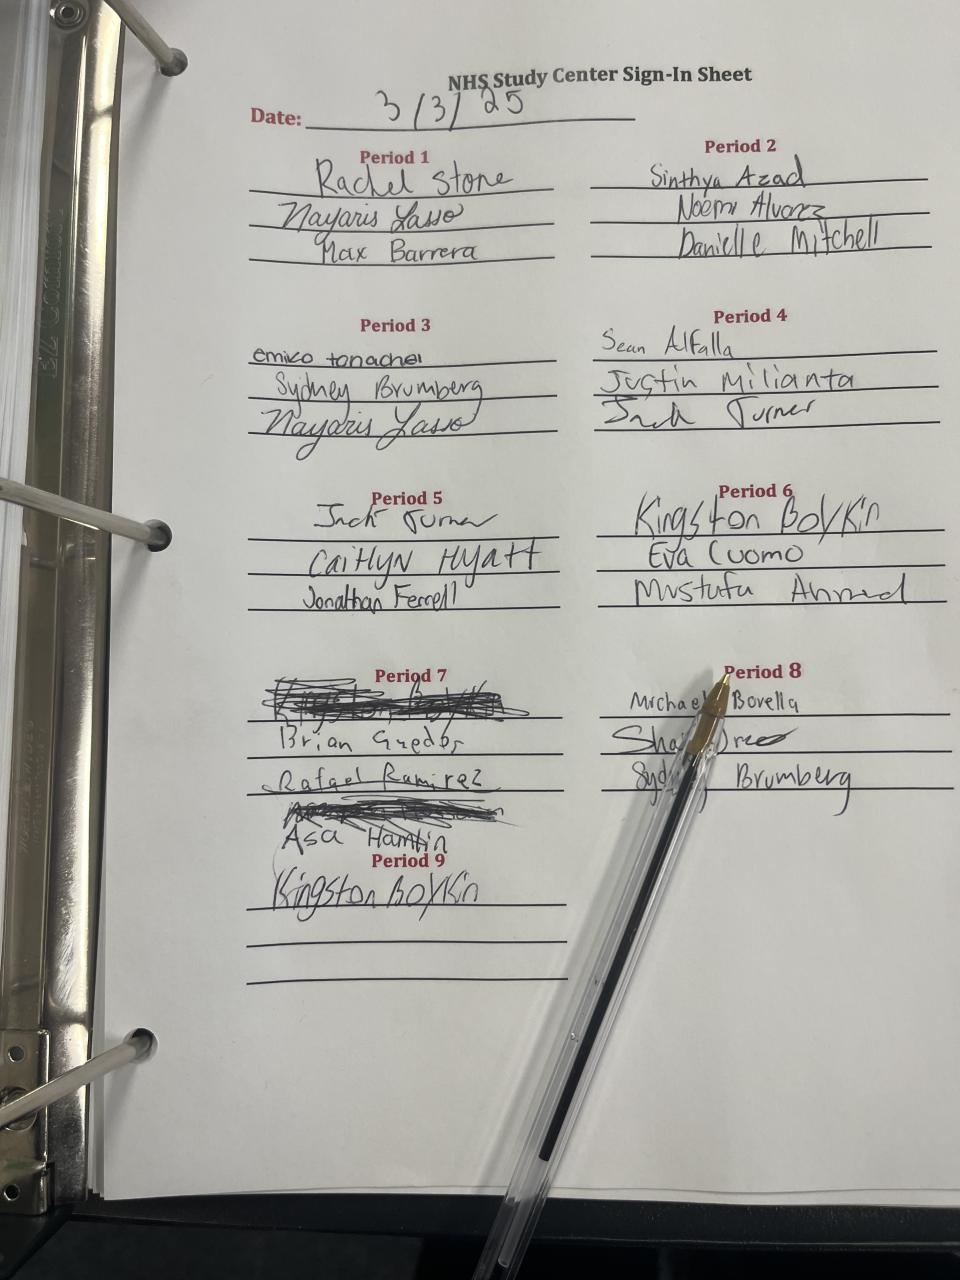 NHS Study Center Sign-In Sheet
Date: 3/3/25
Period 1
Rachel Stone
Nayaris Lasso
Max Barrera
Period 2
Sinthya Azad
Noemi Alvarez
Danielle Mitchell
Period 3
emiko tonachel
Sydney Brumberg
Nayaris Lasso
Period 4
Sean Alfalla
Justin Milianta
Jack Turner
Period 5
Jack Turner
Caitlyn Hyatt
Jonathan Ferrell
Period 6
Kingston Boykin
Eva Cuomo
Mustufa Ahmed
Period 7
Brian
Rafael Ramirez
Asa Hamlin
Period 8
Michael Bovella
Brumberg
Period 9
Kingston Boykin